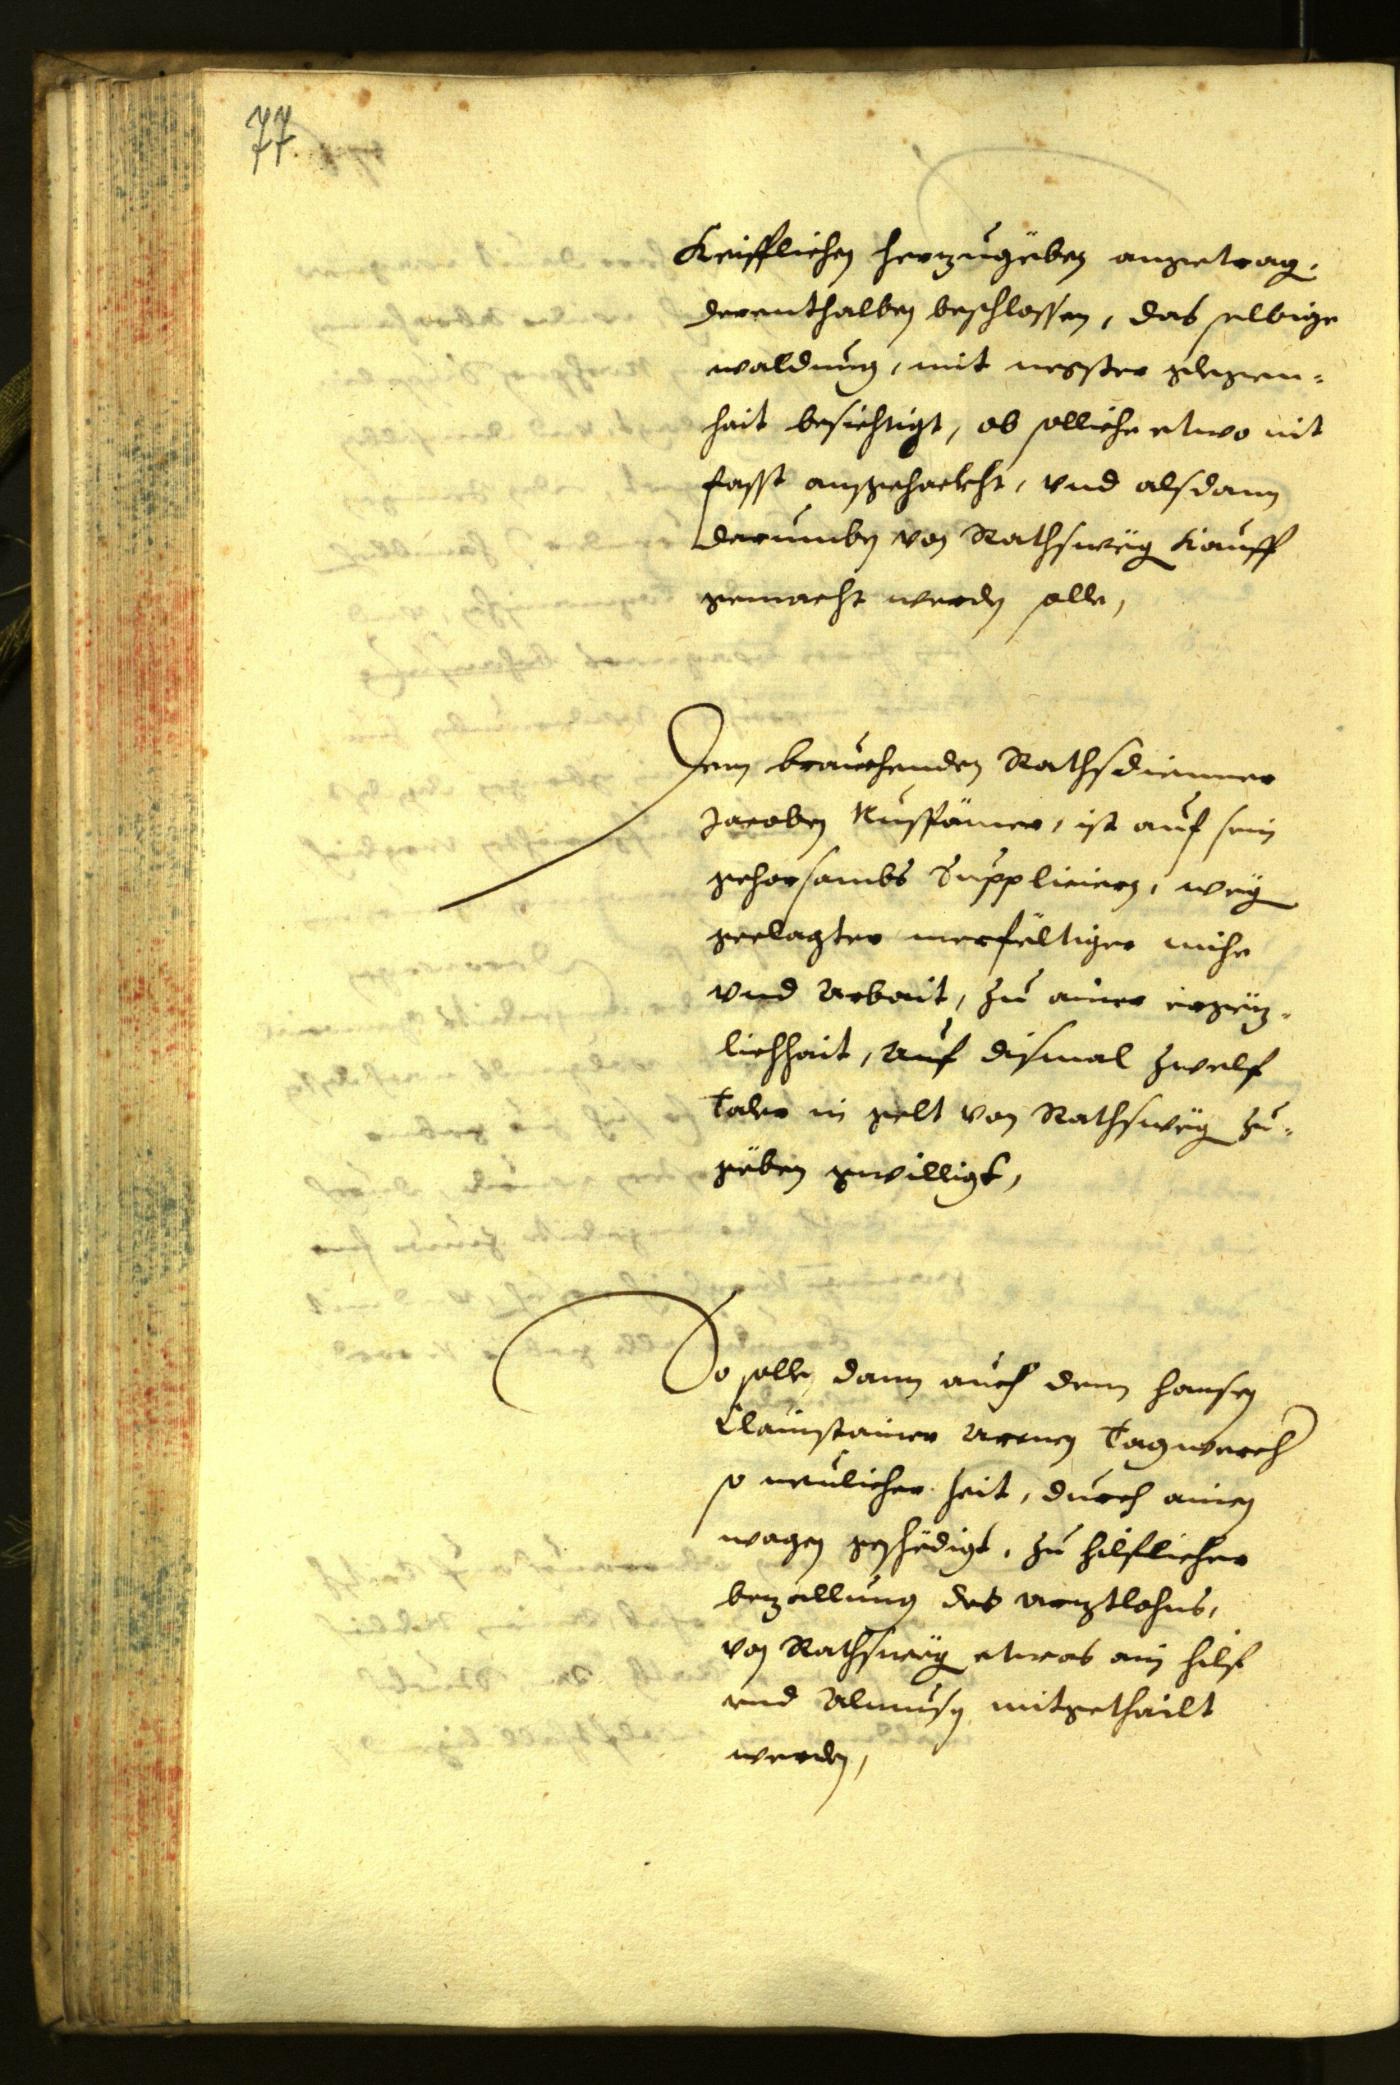 77
Keifflichen herzugeben angetrag,
derenthalben beschlossen, das selbige
waldung, mit negster gelegen-
hait besichtigt, ob solliche etwo nit
fasst ausgehackht, vnd alsdann
darumben von Rathsweg Kauff
gemacht werden solle,
Dem brauchenden Rathsdienner
Jacoben Nussämer, ist auf sein
gehorsambs Suppliciern, weg
geclagter merfältiger mihe
vnd Arbait, zu ainer ergez-
lichhait, Auf dismal zwelf
Taler in gelt von Rathsweg zu-
geben gewilligt,
So solle, dann auch dem hansen
Clainstainer Armen Tagwerch
so neulicher Zeit, durch ainen
wagen geschedigt, zu hilflicher
bezallung des Arztlohns,
von Rathsweg etwas ain hilf
vnd Almusen mitgethailt
werden,